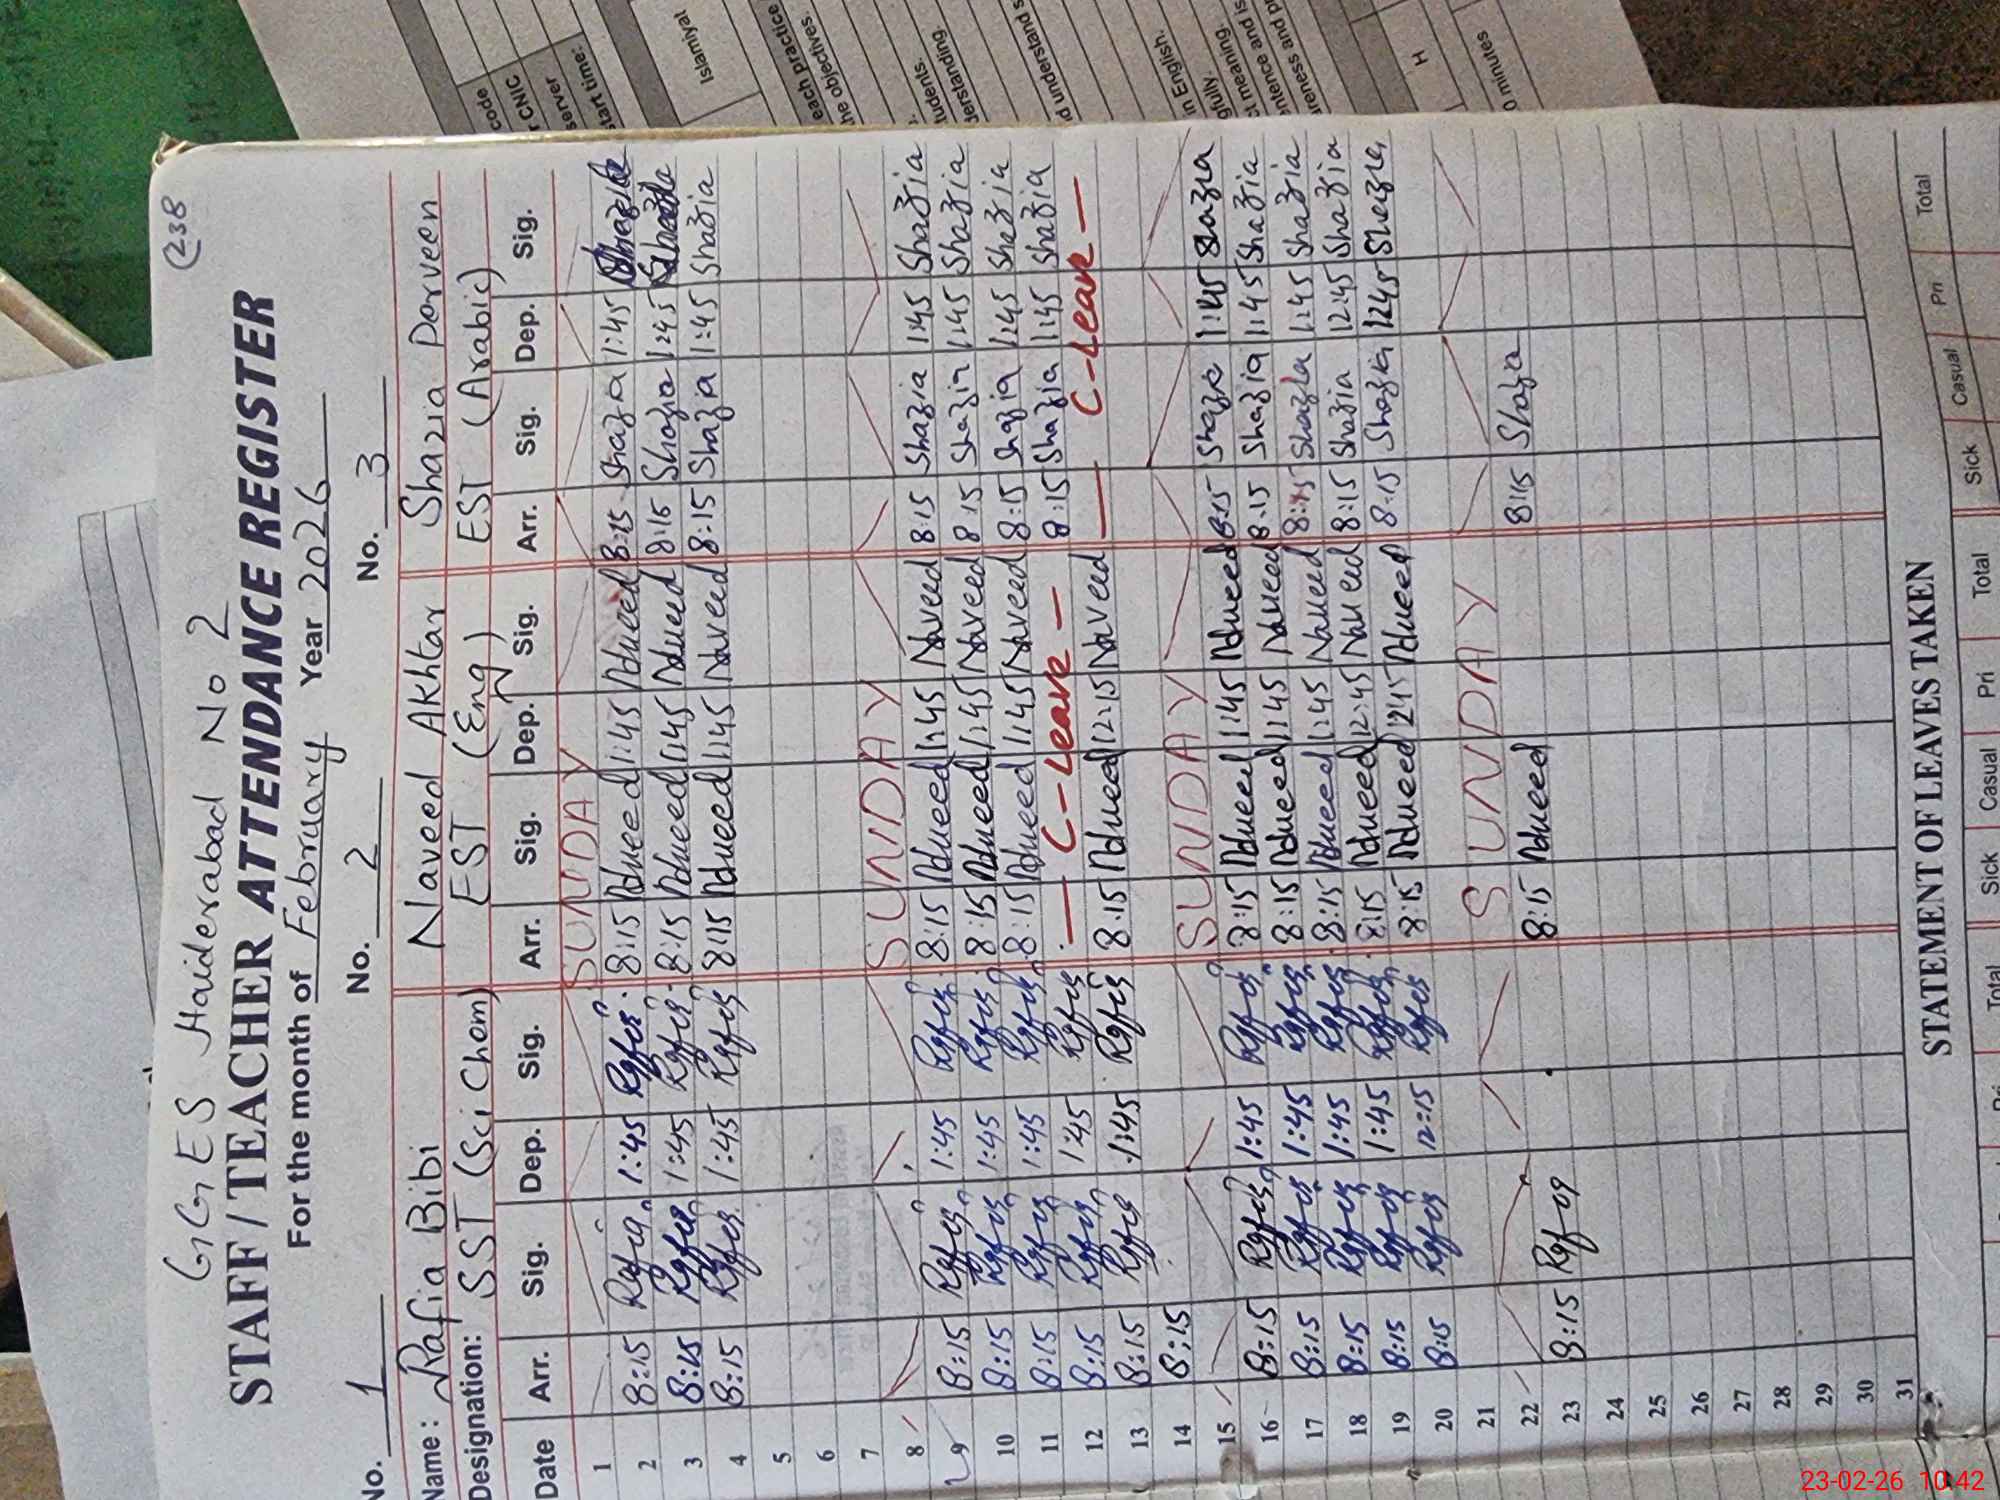 238
GGES Haiderabad No 2
STAFF / TEACHER ATTENDANCE REGISTER
For the month of February Year 2026
No. 1 No. 2 No. 3
Name: Rafia Bibi Naveed Akhtar Shazia Perveen
Designation: SST (Sci Chem) EST (Eng) EST (Arabic)
Date Arr. Sig. Dep. Sig. Arr. Sig. Dep. Sig. Arr. Sig. Dep. Sig.
1 SUNDAY
2 8:15 Rafia 1:45 Rafia 8:15 Naveed 1:45 Naveed 8:15 Shazia 1:45 Shazia
3 8:15 Rafia 1:45 Rafia 8:15 Naveed 1:45 Naveed 8:15 Shazia 1:45 Shazia
4 8:15 Rafia 1:45 Rafia 8:15 Naveed 1:45 Naveed 8:15 Shazia 1:45 Shazia
5
6
7
8 SUNDAY
9 8:15 Rafia 1:45 Rafia 8:15 Naveed 1:45 Naveed 8:15 Shazia 1:45 Shazia
10 8:15 Rafia 1:45 Rafia 8:15 Naveed 1:45 Naveed 8:15 Shazia 1:45 Shazia
11 8:15 Rafia 1:45 Rafia 8:15 Naveed 1:45 Naveed 8:15 Shazia 1:45 Shazia
12 8:15 Rafia 1:45 Rafia — C-Leave — 8:15 Shazia 1:45 Shazia
13 8:15 Rafia 1:45 Rafia 8:15 Naveed 12:15 Naveed — C-Leave —
14 8:15
15 SUNDAY
16 8:15 Rafia 1:45 Rafia 8:15 Naveed 1:45 Naveed 8:15 Shazia 1:45 Shazia
17 8:15 Rafia 1:45 Rafia 8:15 Naveed 1:45 Naveed 8:15 Shazia 1:45 Shazia
18 8:15 Rafia 1:45 Rafia 8:15 Naveed 1:45 Naveed 8:15 Shazia 1:45 Shazia
19 8:15 Rafia 1:45 Rafia 8:15 Naveed 12:45 Naveed 8:15 Shazia 12:45 Shazia
20 8:15 Rafia 12:15 Rafia 8:15 Naveed 12:45 Naveed 8:15 Shazia 12:45 Shazia
21
22 SUNDAY
23 8:15 Rafia 8:15 Naveed 8:15 Shazia
24
25
26
27
28
29
30
31
STATEMENT OF LEAVES TAKEN
Total Sick Casual Pri Total Sick Casual Pri Total
code
CNIC
server
start time:
Islamiyat
each practice
he objectives.
udents.
derstanding.
d understand s
in English.
gfully
ct meaning.
entence and is
areness and p
H
0 minutes
23-02-26 10:42